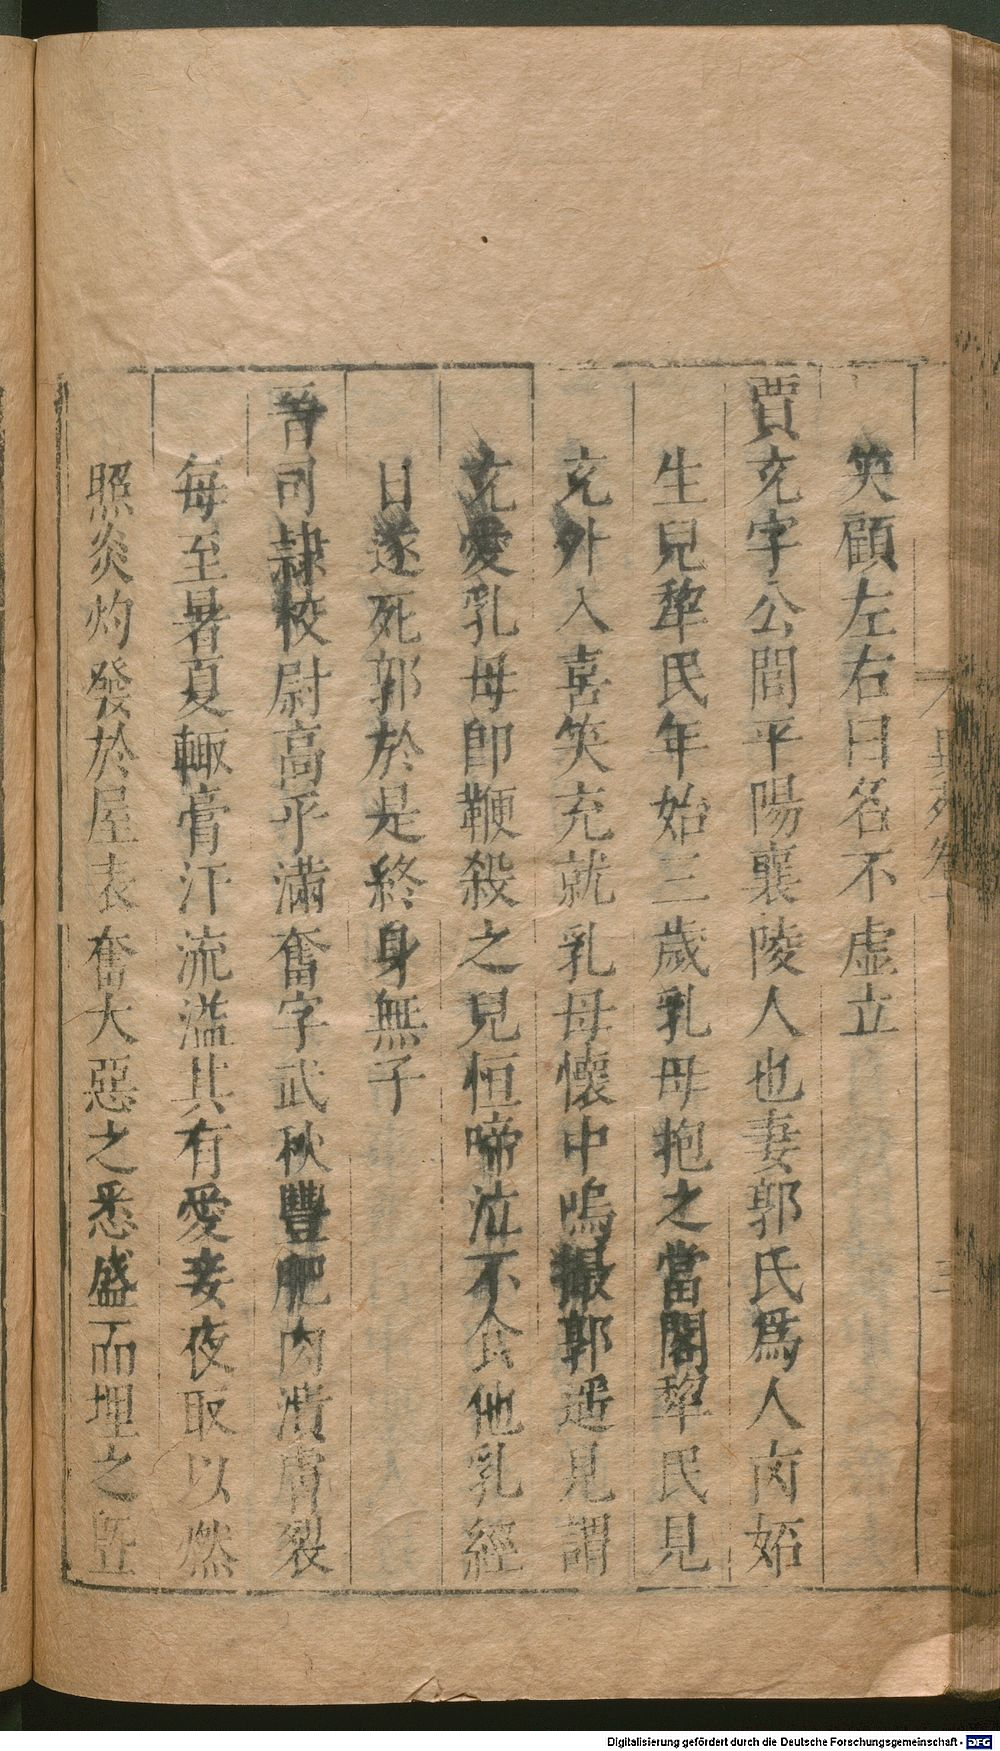 笑顧左右曰名不虛立
賈充字公閭平陽襄陵人也妻郭氏爲人㐫妬
生兒犂民年始三歲乳母抱之當閣犂民見
充外入喜笑充就乳母懷中嗚撮郭遥見謂
充愛乳母卽鞭殺之兒恒啼泣不食他乳經
日遂死郭於是終身無子
晉司隷校尉高平滿奮字武秋豐肥肉潰膚裂
每至暑夏輙膏汗流溢其有愛妾夜取以燃
照炎灼發於屋表奮大惡之悉盛而埋之曁
異苑卷
三
Digitalisierung gefördert durch die Deutsche Forschungsgemeinschaft - DFG